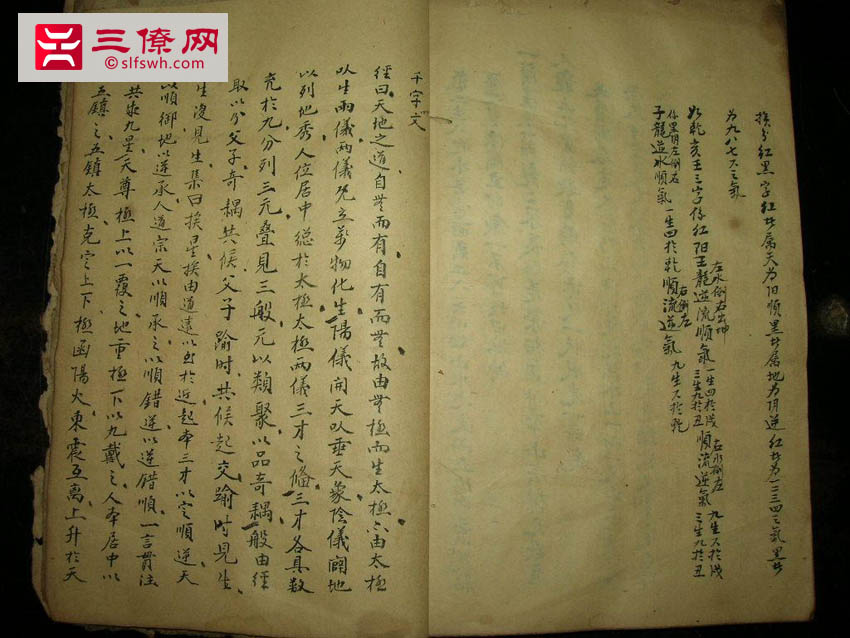 三僚网
slfswh.com
挨分紅黑字紅廿属天为阳順黑廿居地为阴逆紅廿为一二三四之氣黑廿
为九八七六之氣
如乾亥壬三字係紅阳壬龍逆流順氣一生四於戌三生九於丑順流逆氣九生六於戌三生九於丑
左水倒右出坤
右水倒左
係黑阴左倒右
子龍逆水順氣一生四於乾順流逆氣九生六於乾
右倒左
千字文
經曰天地之道自无而有自有而无故由无極而生太極六由太極
以生两儀两儀既立萬物化生陽儀開天以垂天象陰儀闢地
以列地秀人位居中總於太極太極两儀三才之脩三才各具数
充於九分列三元疊見三般元以類聚以品奇耦般由經
取以分父子奇耦共候父子踰时共候起交踰时見生
生没見生集曰挨星挨由道遠以出於近起本三才以定順逆天
以順御地以逆承人道宗天以順承之以順錯逆以逆錯順一言貫注
共最九星天尊極上以一覆之地重極下以九戴之人本居中以
五鎮之五鎮太極克定上下極函陽火東震互离上升於天